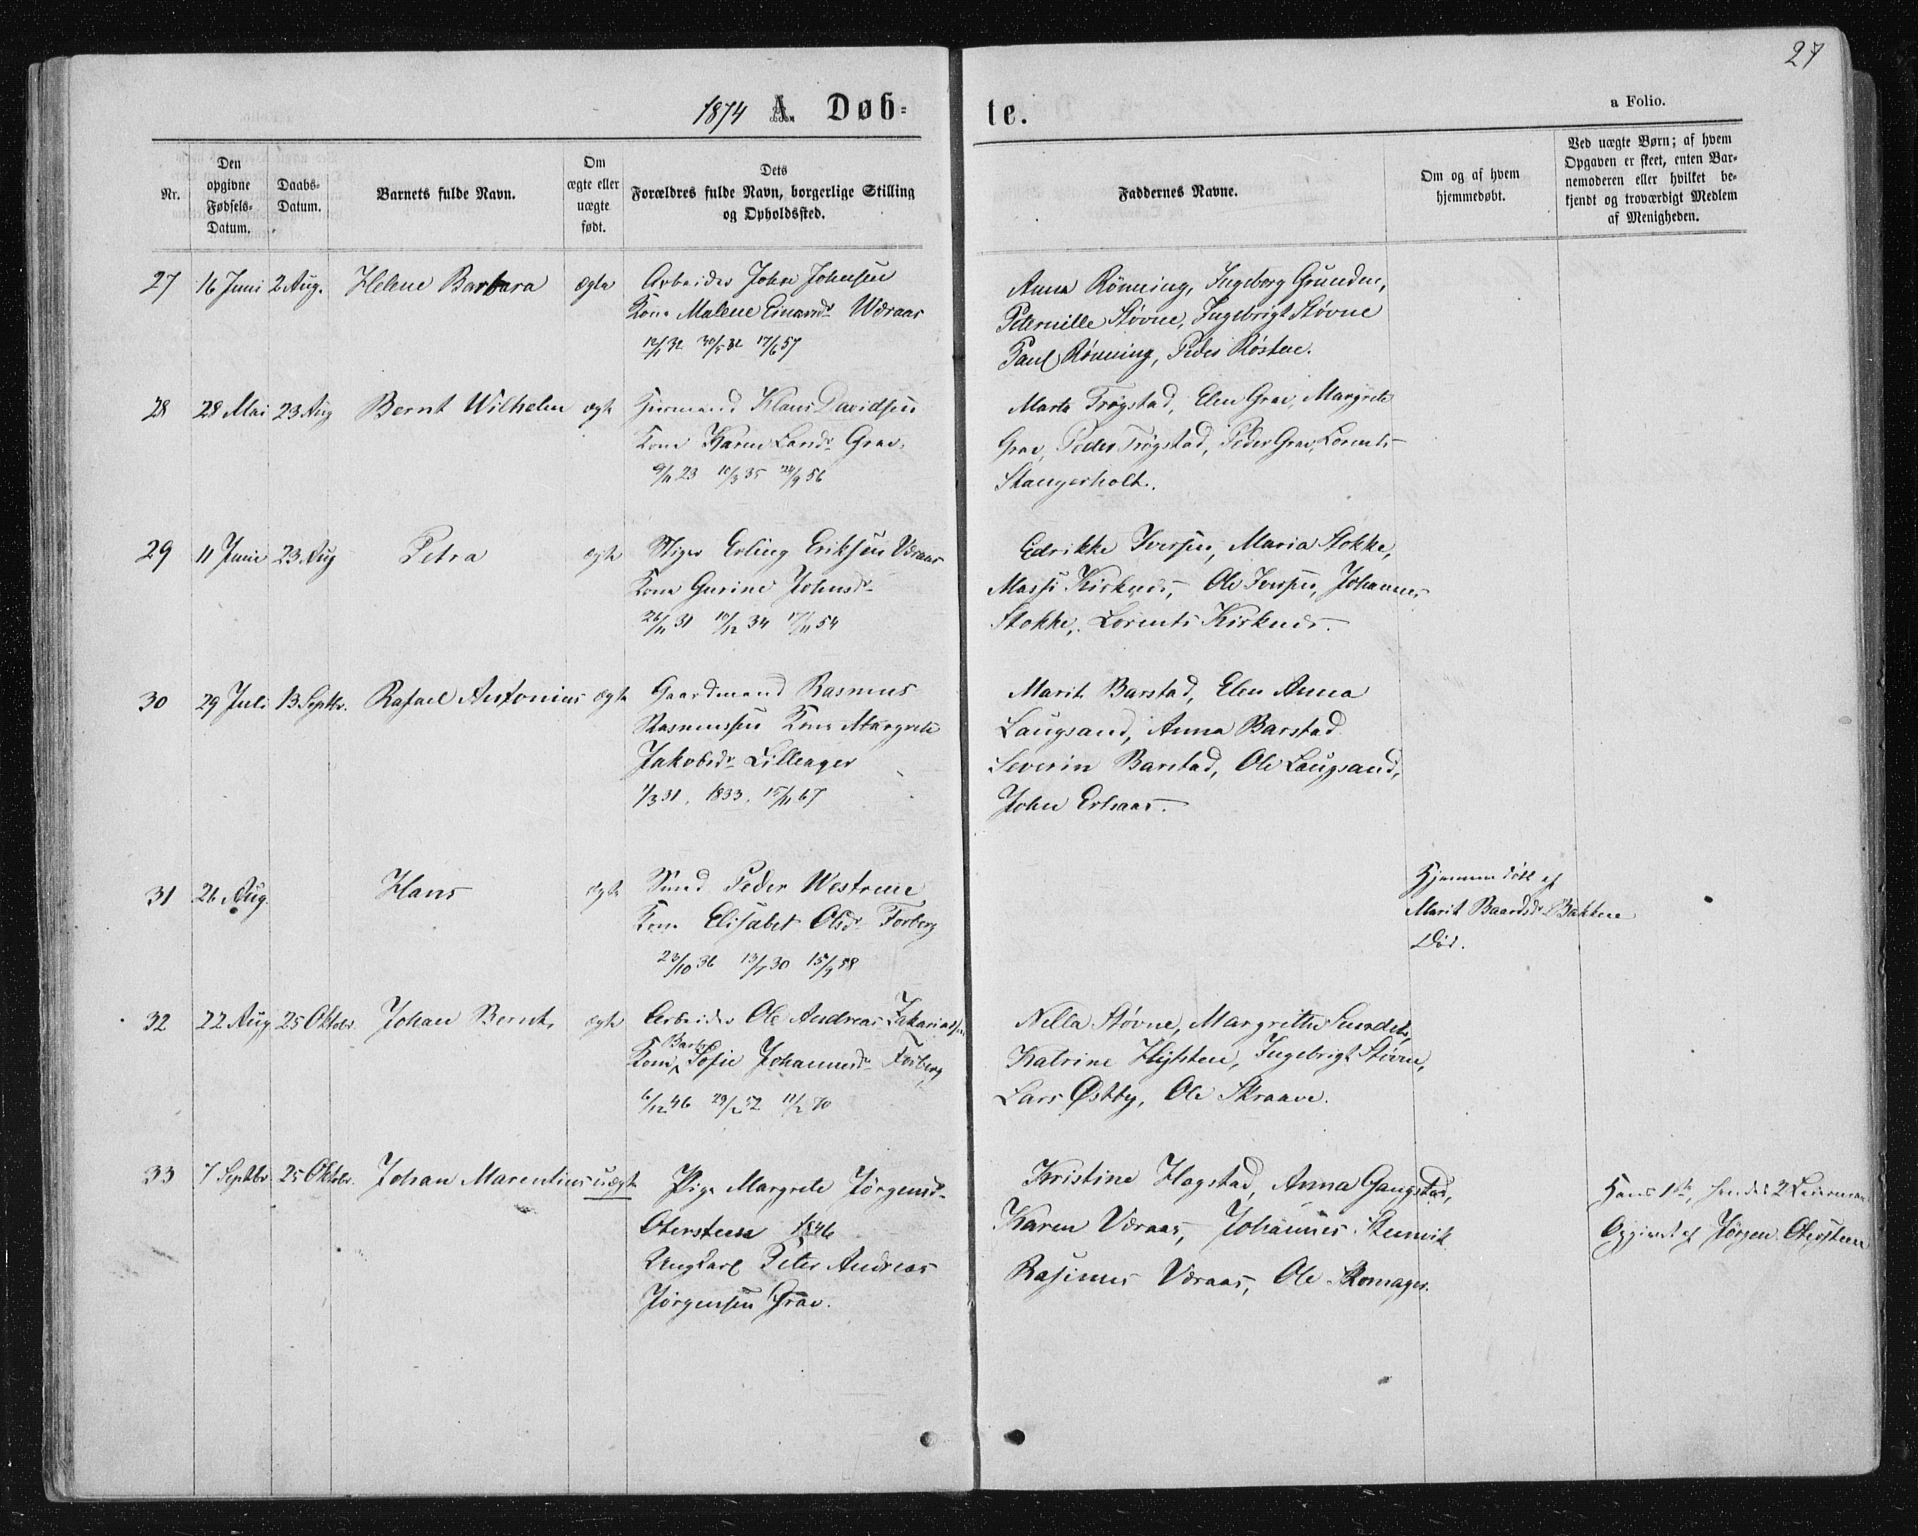 27
1874 A. Døb-
te.
a Folio.
Nr.
Den opgivne Fødsels-Datum.
Daabs-Datum.
Barnets fulde Navn.
Om ægte eller uægte født.
Dets Forældres fulde Navn, borgerlige Stilling og Opholdssted.
Faddernes Navne.
Om og af hvem hjemmedøbt.
Ved uægte Børn; af hvem Opgaven er skeet, enten Barnemoderen eller hvilket bekjendt og troværdigt Medlem af Menigheden.
27 16 Juni 2 Aug. Helene Barbara ægte Arbeider Johse Johnsen
Kone Malene Einarsdr Væraas
12/1 32 30/5 32 17/6 57
Anna Rönning, Ingeborg Grunden,
Peternille Støvne, Ingebrigt Støvne
Paul Rönning, Peder Røstene.
28 28 Mai 23 Aug Bernt Wilhelm ægte Huusmand Klaus Davidsen
Kone Karen Larsdr Grav.
9/11 23 10/3 35 24/9 56
Marta Trøgstad, Elen Grav, Margrete
Grav, Peder Trøgstad, Peder Grav, Lorents
Stangerholt.
29 11 Juni 23 Aug Petra ægte Stiger Erling Eriksen Væraas
Kone Gurine Johnsdr
26/11 31 10/12 34 17/11 54
Edrikke Iversen, Maria Stokke,
Massi Kirknes, Ole Iversen, Johannes
Stokke, Lorents Kirknes.
30 29 Juli 13 Septbr. Rafael Antonius ægte Gaardmand Rasmus
Rasmussen Kone Margrete
Jakobsdr Lilleager
1/3 31. 1833. 15/11 67
Marit Barstad, Elen Anna
Laugsand, Anna Barstad
Severin Barstad, Ole Laugsand,
John Erhaas.
31 26 Aug. Hans ægte Smed Peder Westrene
Kone Elisabet Olsdr Forberg
23/10 36 13/7 30 15/9 58
Hjemmedøbt af
Marit Baardsdr Bakken
Död.
32 22 Aug 25 Oktobr. Johan Bernt ægte Arbeider Ole Andreas Zakariassen
Kone Barbr Sofie Johannesdr Forberg
6/12 46 29/2 52 11/2 70
Nella Støvne, Margrethe Sundet,
Katrine Hylsten, Ingebrigt Støvne,
Lars Østby, Ole Skraave.
33 7 Septbr. 25 Oktobr. Johan Marentius uægte Pige Margrete Jørgensdr
Otersteen 1846
Ungkarl Peter Andreas
Jørgensen Grav.
Kristine Hagstad, Anna Gangstad,
Karen Væraas, Johannes Stenvik
Rasmus Væraas, Ole Romager.
Hans 1ste, hendes 2 Leiermaal
Opgivet af Jørgen Otersteen